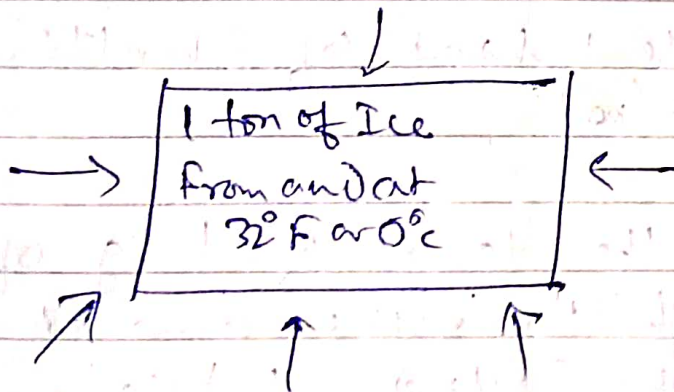 1 ton of Ice
From and at
32° F or 0°c